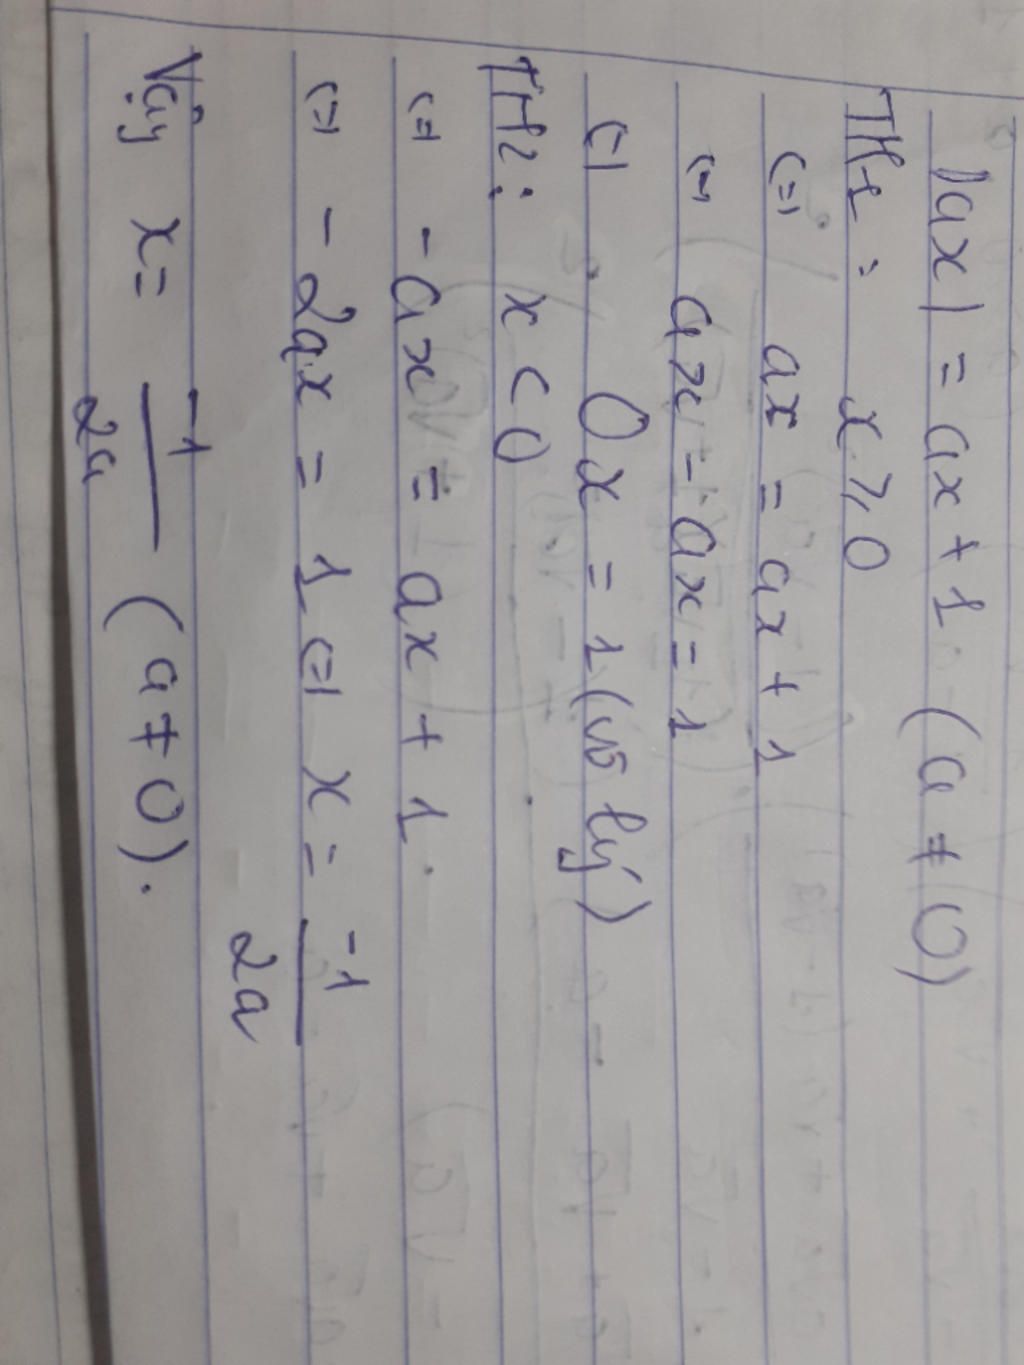 |ax| = ax + 1 (a ≠ 0)
TH1 : x ⩾ 0
(=) ax = ax + 1
(=) ax - ax = 1
(=) 0x = 1 (vô lý)
TH2 : x < 0
(=) - ax = ax + 1.
(=) - 2ax = 1 (=) x = -1/2a
Vậy x = -1/2a (a ≠ 0).